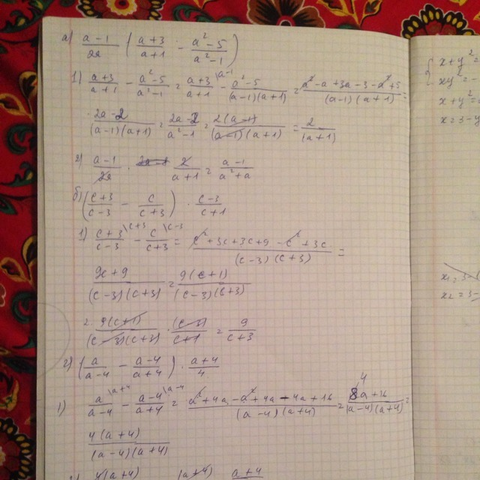 а) (a-1)/(2a) ( (a+3)/(a+1) - (a²-5)/(a²-1) )
1) (a+3)/(a+1) - (a²-5)/(a²-1) = (a+3)/(a+1) \a-1 - (a²-5)/((a-1)(a+1)) = (a²-a+3a-3-a²+5)/((a-1)(a+1)) =
(2a-2)/((a-1)(a+1)) = (2a-2)/(a²-1) = (2(a-1))/((a-1)(a+1)) = 2/(a+1)
(a-1)/(2a) · 2/(a+1) = (a-1)/(a²+a)
б) ( (c+3)/(c-3) - c/(c+3) ) · (c-3)/(c+1)
1) (c+3)/(c-3) \c+3 - c/(c+3) \c-3 = (c²+3c+3c+9-c²+3c)/((c-3)(c+3)) =
(9c+9)/((c-3)(c+3)) = (9(c+1))/((c-3)(c+3))
= (9(c+1))/((c-3)(c+3)) · (c-3)/(c+1) = 9/(c+3)
( a/(a-4) - (a-4)/(a+4) ) · (a+4)/4
1) a/(a-4) \a+4 - (a-4)/(a+4) \a-4 = (a²+4a-a²+4a-4a+16)/((a-4)(a+4)) = (8a+16)/((a-4)(a+4)) =
4
(4(a+4))/((a-4)(a+4))
4(a+4) (a+4) a+4
x+y²=
xy²=-
x+y²=
x=3-y
x₁=3-
x₂=3-